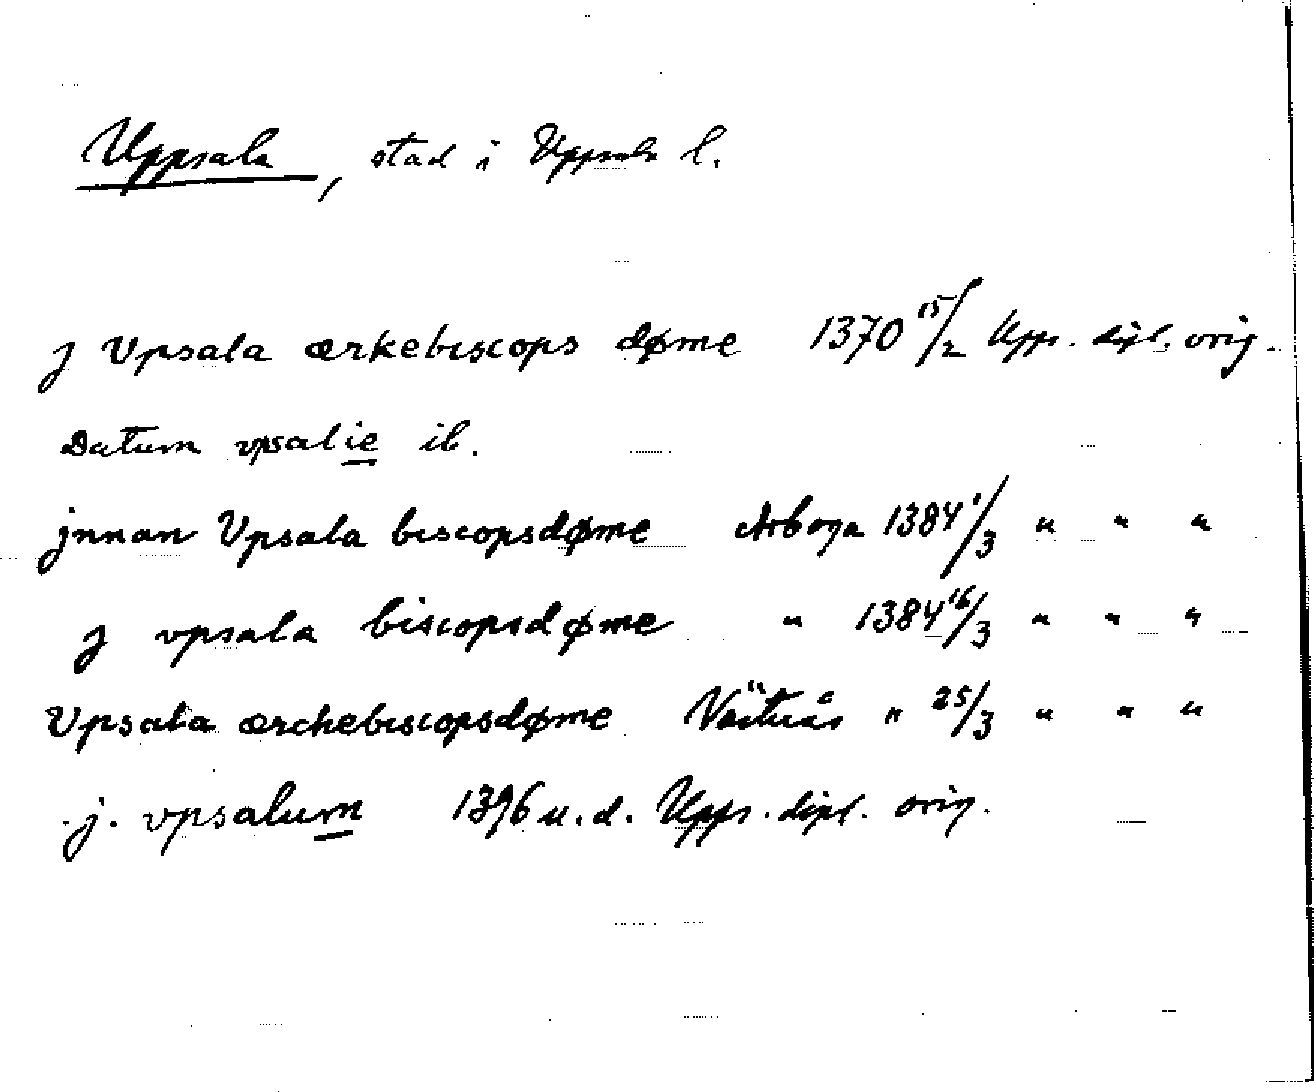 Uppsala, stad i Uppsala l.
j Upsala ærkebiscops døme 1370 15/2 Upps. dipl. orig.
Datum vpsalie ib.
jnnan Vpsala biscopsdøme Arboga 1384 1/3 " " "
j vpsala biscopsdøme " 1384 16/3 " " "
Vpsala ærchebiscopsdøme Västerås " 25/3 " " "
j. vpsalum 1396 u. d. Upps. dipl. orig.